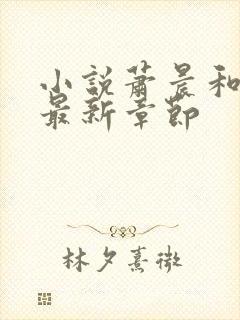 小説蕭晨和
最新章節
林夕熹微